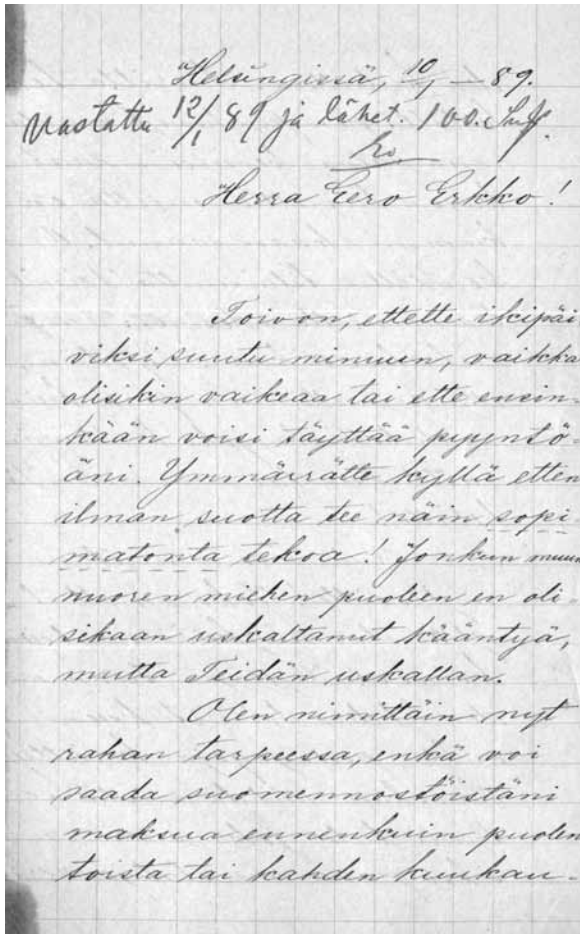 Helsingissä, 10/1 – 89.
Vastattu 12/1 89 ja lähet. 100.
Herra Eero Erkko!
Toivon, ettette ikipäi
viksi suutu minuun, vaikka
olisikin vaikeaa tai ette ensin-
kään voisi täyttää pyyntö-
äni. Ymmärrätte kyllä etten
ilman suotta tee näin sopi
matonta tekoa! Jonkun muun
nuoren miehen puoleen en oli-
sikaan uskaltanut kääntyä,
mutta Teidän uskallan.
Olen nimittäin nyt
rahan tarpeessa, enkä voi
saada suomennostöistäni
maksua ennenkuin puolen
toista tai kahden kuukau-